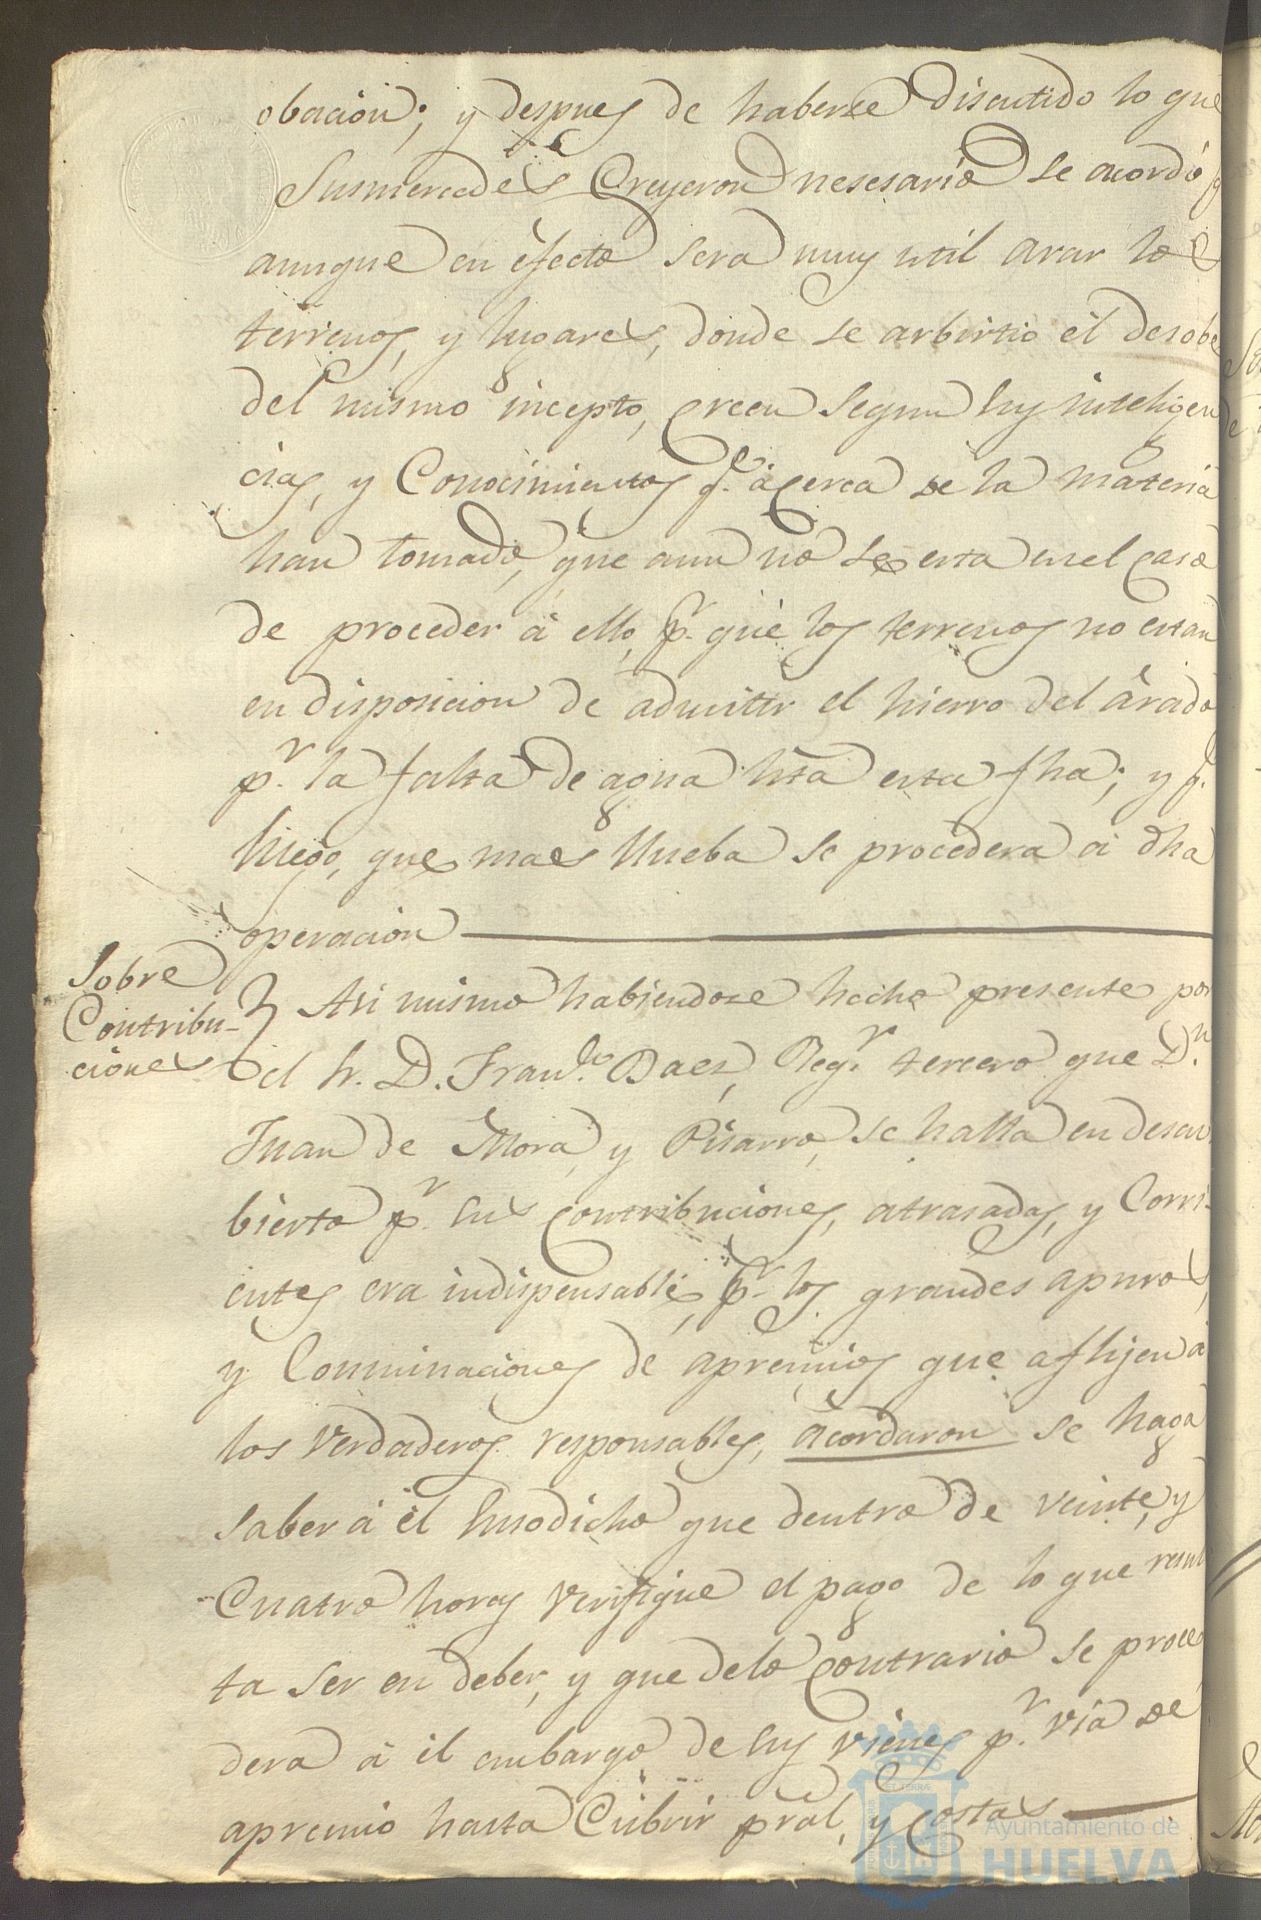 obacion; y despues de haberse discutido lo que
Susmercedes Creyeron nesesario se acordó q.
aunque en efecto sera muy util arar los
terrenos, y lugares, donde se arbirtio el desobe
del mismo incepto, creen segun sus inteligen
cias, y Conocimientos q.e acerca de la materia
han tomado, que aun no se esta en el caso
de proceder á ello, p.r que los terrenos no estan
en disposicion de admitir el hierro del árado
p.r la falta de agua hta esta fha; y q.
luego, que mas llueba se procedera á dha
operacion
Sobre
Contribu-
ciones
Asi mismo habiendose hecho presente por
el Sr. D. Fran.co Baez, Reg.r tercero que D.n
Juan de Mora, y Pisarro, se halla en descu
bierto p.r sus contribuciones, atrasadas, y Corri-
entes era indispensable, p.r los grandes apuros,
y Conminaciones de apremios que aflijen á
los verdaderos responsables, acordaron se haga
saber á él susodicho que dentro de veinte, y
Cuatro horas verifique el pago de lo que resul
ta ser en deber, y que delo contrario se proce
dera á el embargo de sus vienes p.r via de
apremio hasta Cubrir pral, y costas
Ayuntamiento de
HUELVA